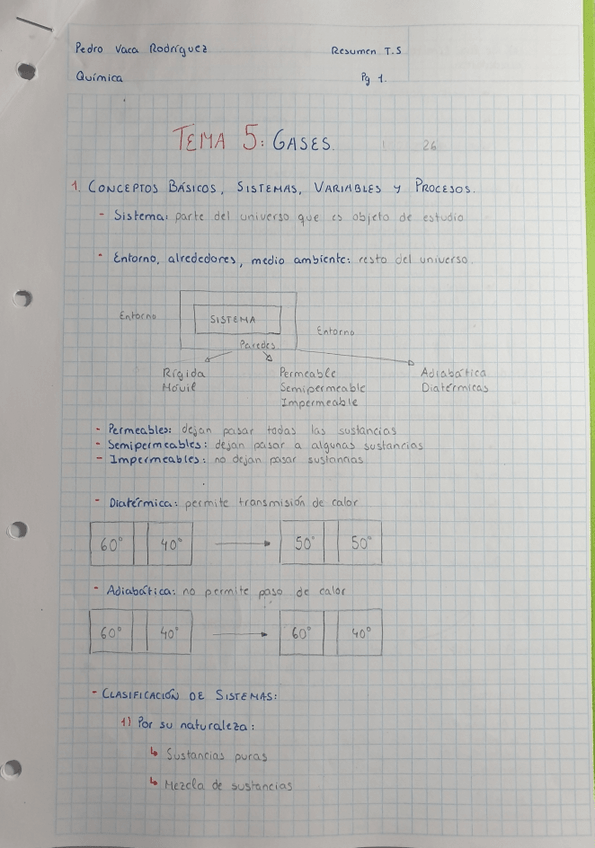 Pedro Vaca Rodríguez Resumen T.5
Química Pg 1.
TEMA 5: GASES. 26
1. CONCEPTOS BÁSICOS, SISTEMAS, VARIABLES Y PROCESOS.
- Sistema: parte del universo que es objeto de estudio
- Entorno, alrededores, medio ambiente: resto del universo.
Entorno SISTEMA Entorno
Paredes
Rígida Permeable Adiabática
Móvil Semipermeable Diatérmicas
Impermeable
- Permeables: dejan pasar todas las sustancias
- Semipermeables: dejan pasar a algunas sustancias
- Impermeables: no dejan pasar sustancias
- Diatérmica: permite transmisión de calor
60° 40° 50° 50°
- Adiabática: no permite paso de calor
60° 40° 60° 40°
- CLASIFICACIÓN DE SISTEMAS:
1) Por su naturaleza:
↳ Sustancias puras
↳ Mezcla de sustancias